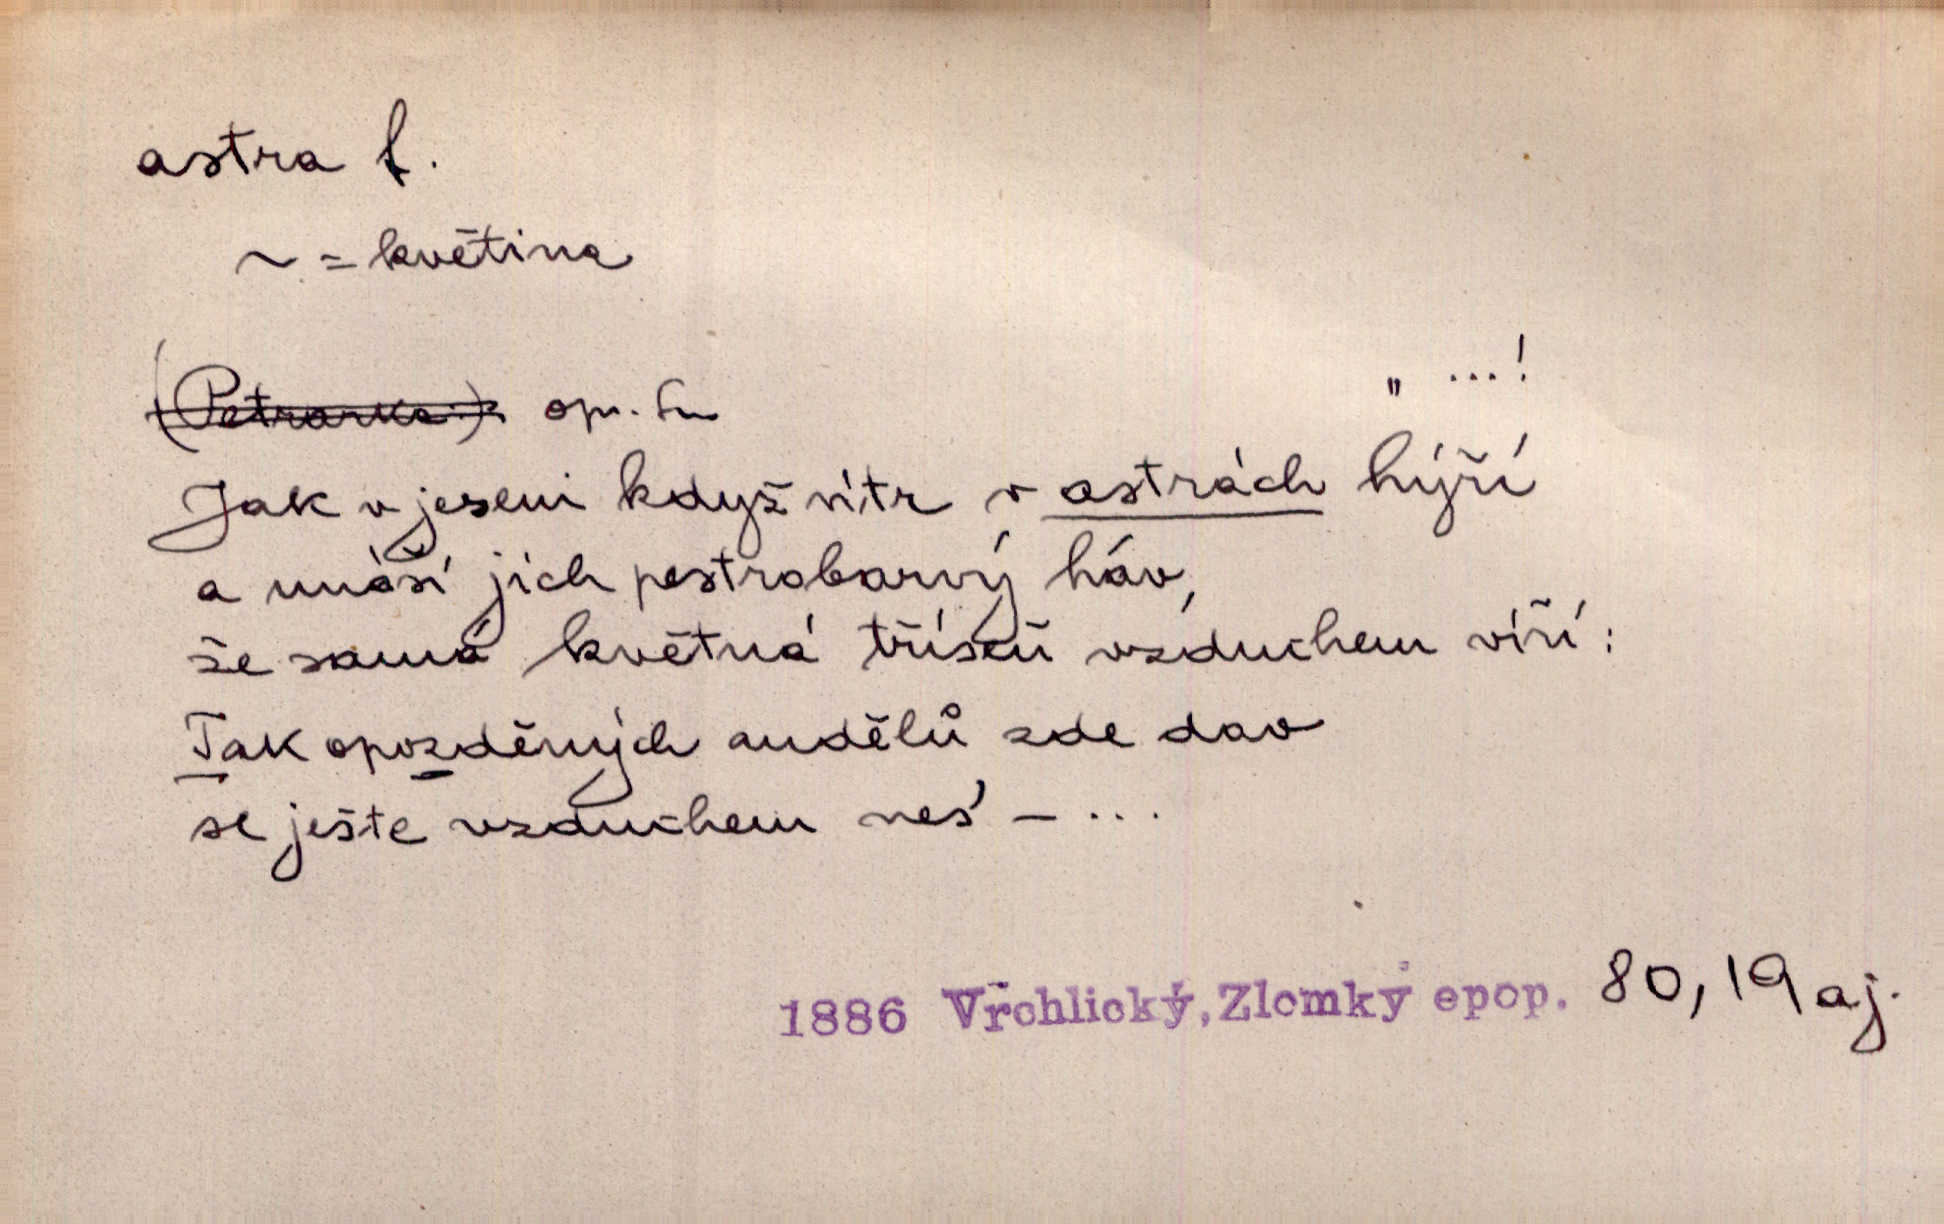 astra f.
~ = květina
" ...!
(Petrarka)
Jak v jeseni když vítr v astrách hýří
a unáší jich pestrobarvý háv,
že samá květná tříšť vzduchem víří:
Tak opozděných andělů zde dav
se ješte vzduchem nes' – ...
1886 Vrchlický, Zlomky epop. 80,19 aj.